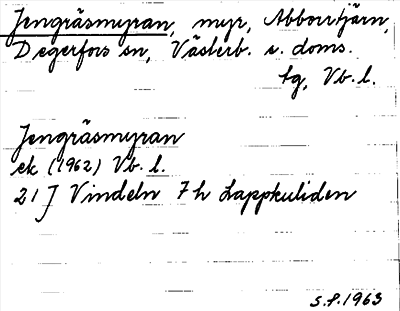 Jengräsmyran, myr, Abborrtjärn,
Degerfors sn, Västerb. s. doms.
tg, Vb. l.
Jengräsmyran
ek (1962) Vb. l.
21 J Vindeln 7 h Lappkuliden
S.f. 1963